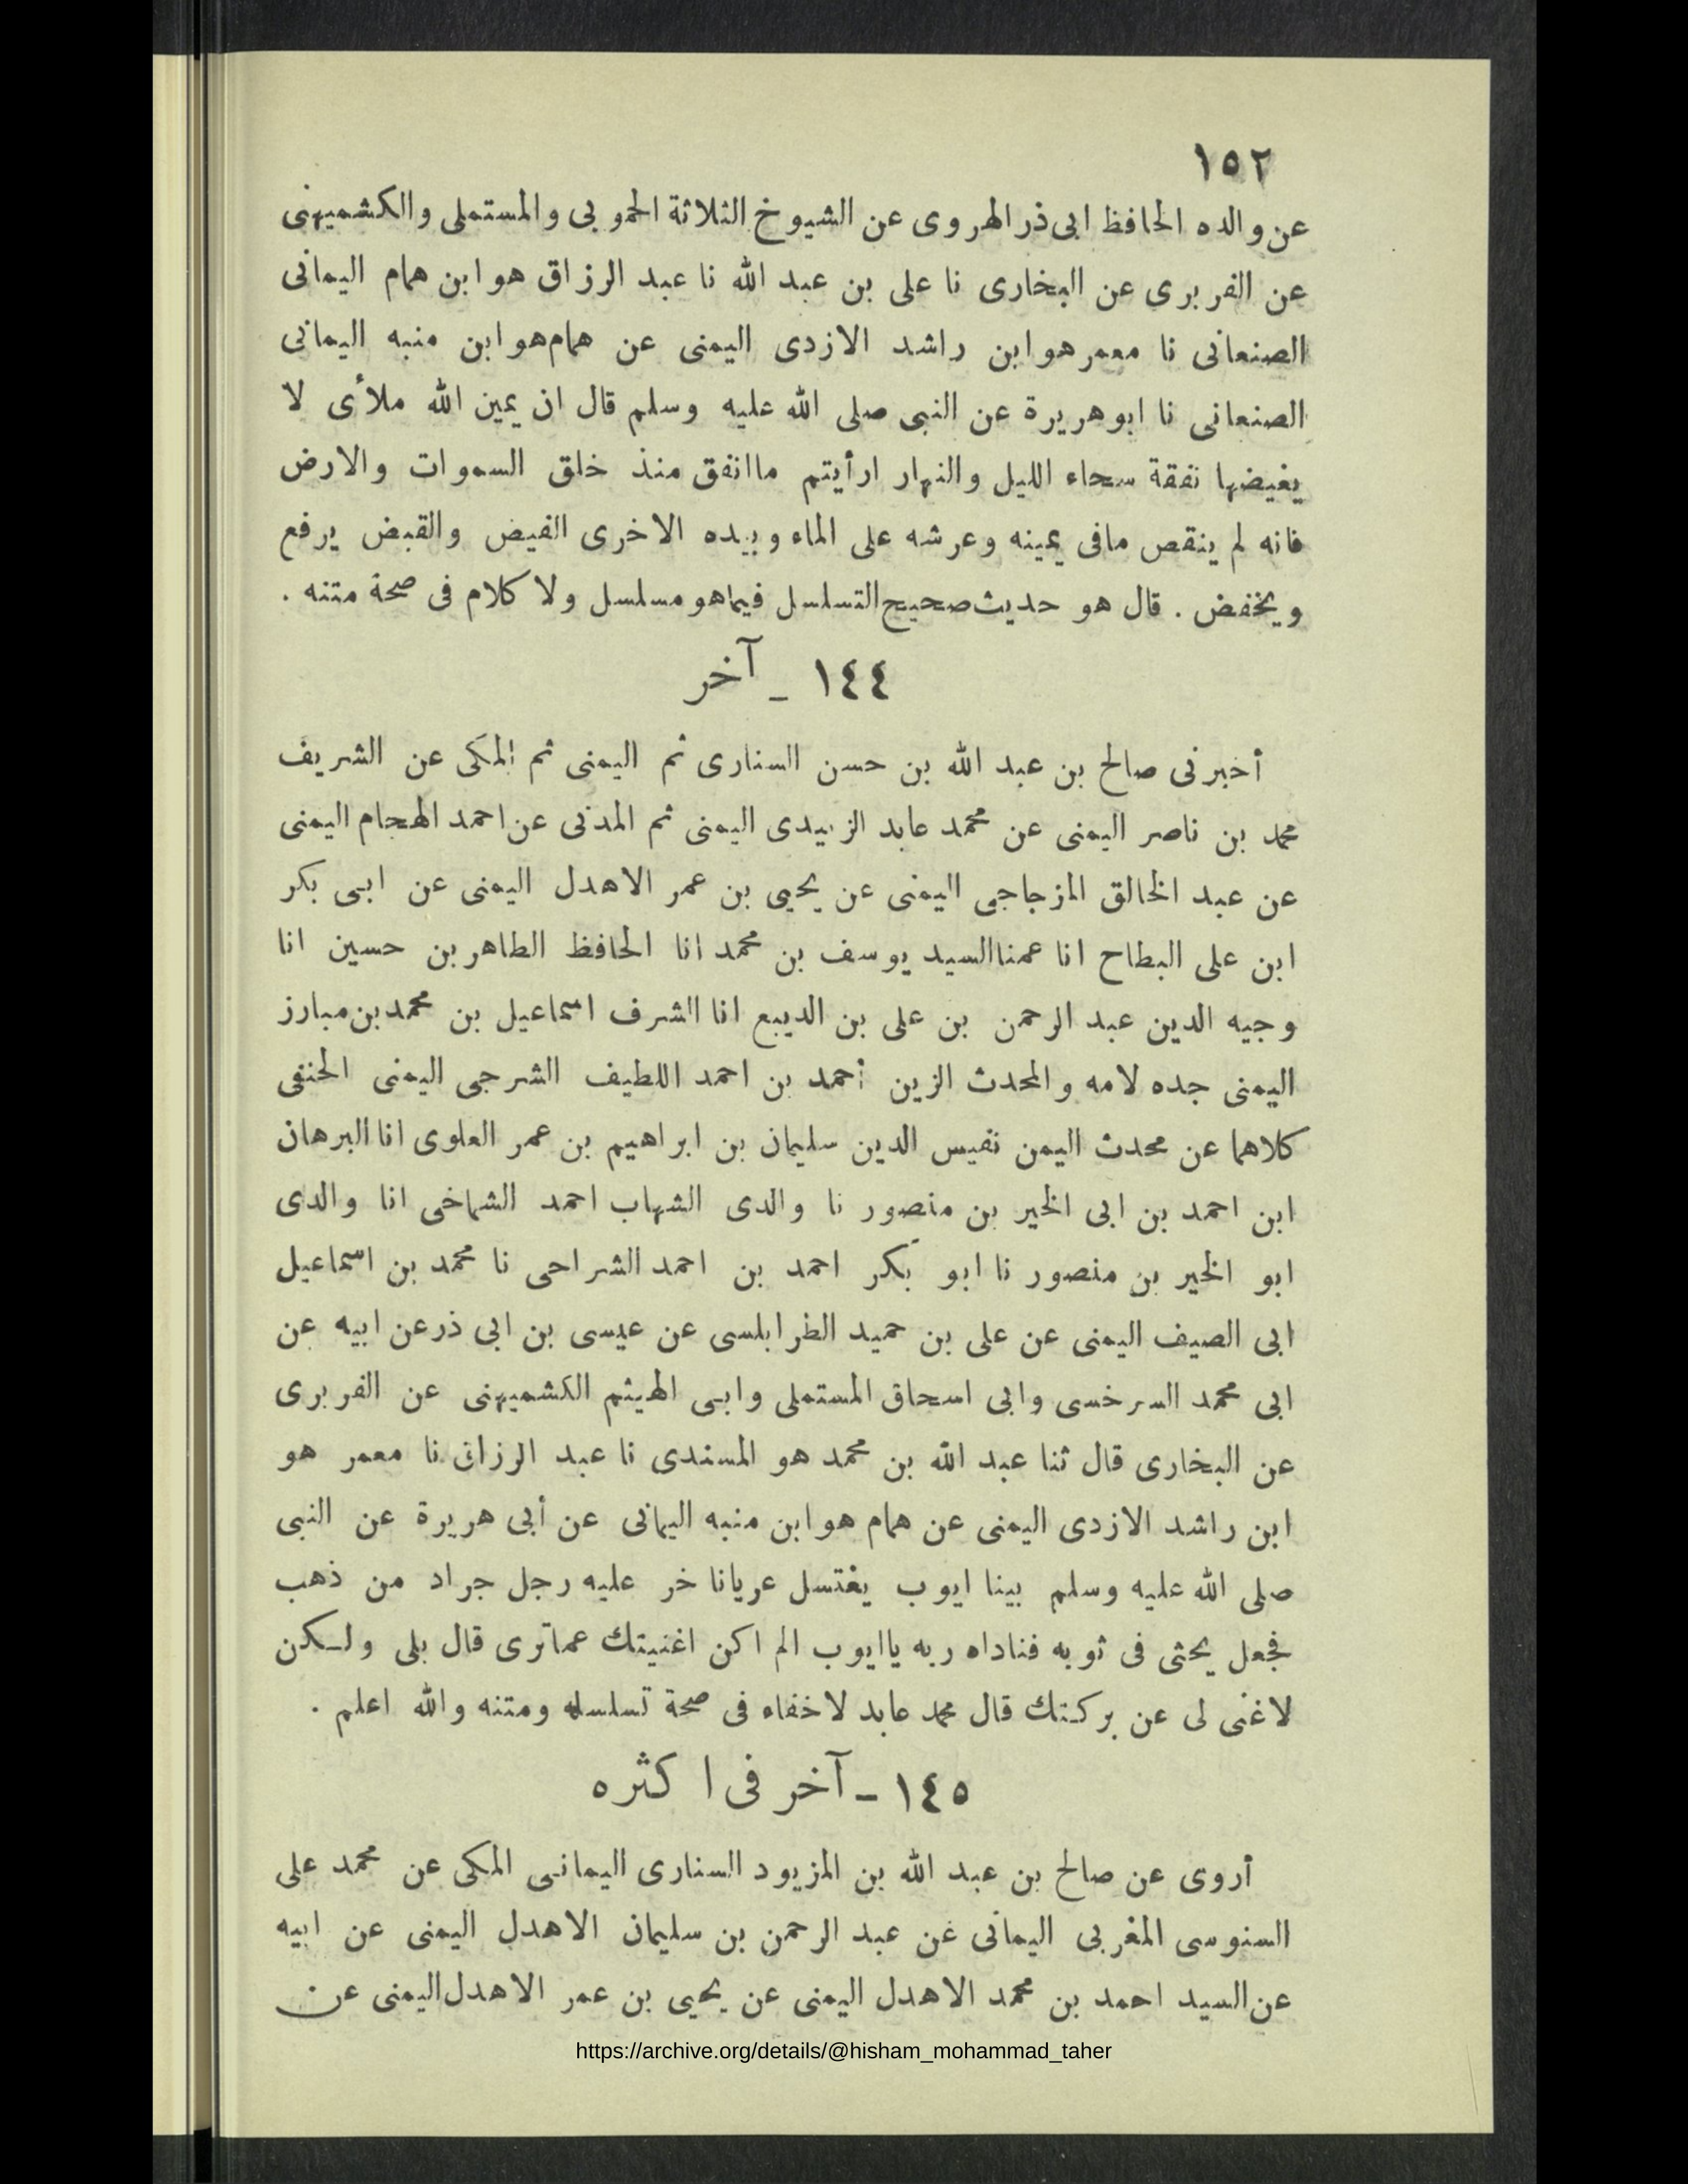 ١٥٢
عن والده الحافظ ابى ذر الهروى عن الشيوخ الثلاثة الحموبى والمستملى والكشميهنى
عن الفربرى عن البخارى نا على بن عبد الله نا عبد الرزاق هو ابن همام اليمانى
الصنعانى نا معمر هو ابن راشد الازدى اليمنى عن همام هو ابن منبه اليمانى
الصنعانى نا ابو هريرة عن النبى صلى الله عليه وسلم قال ان يمين الله ملأى لا
يغيضها نفقة سحاء الليل والنهار ارأيتم ما انفق منذ خلق السموات والارض
فانه لم ينقص مافى يمينه وعرشه على الماء وبيده الاخرى الفيض والقبض يرفع
ويخفض . قال هو حديث صحيح التسلسل فيما هو مسلسل ولا كلام فى صحة متنه .
١٤٤ ـ آخر
أخبرنى صالح بن عبد الله بن حسن السنارى ثم اليمنى ثم المكى عن الشريف
محمد بن ناصر اليمنى عن محمد عابد الزبيدى اليمنى ثم المدنى عن احمد الهجام اليمنى
عن عبد الخالق المزجاجى اليمنى عن يحيى بن عمر الاهدل اليمنى عن ابى بكر
ابن على البطاح انا عمنا السيد يوسف بن محمد انا الحافظ الطاهر بن حسين انا
وجيه الدين عبد الرحمن بن على بن الديبع انا الشرف اسماعيل بن محمد بن مبارز
اليمنى جده لامه والمحدث الزين أحمد بن احمد اللطيف الشرجى اليمنى الحنفى
كلاهما عن محدث اليمن نفيس الدين سليمان بن ابراهيم بن عمر العلوى انا البرهان
ابن احمد بن ابى الخير بن منصور نا والدى الشهاب احمد الشماخى انا والدى
ابو الخير بن منصور نا ابو بكر احمد بن احمد الشراحى نا محمد بن اسماعيل
ابى الصيف اليمنى عن على بن حميد الطرابلسى عن عيسى بن ابى ذر عن ابيه عن
ابى محمد السرخسى وابى اسحاق المستملى وابى الهيثم الكشميهنى عن الفربرى
عن البخارى قال ثنا عبد الله بن محمد هو المسندى نا عبد الرزاق نا معمر هو
ابن راشد الازدى اليمنى عن همام هو ابن منبه اليمانى عن أبى هريرة عن النبى
صلى الله عليه وسلم بينا ايوب يغتسل عريانا خر عليه رجل جراد من ذهب
فجعل يحثى فى ثوبه فناداه ربه يا ايوب الم اكن اغنيتك عما ترى قال بلى ولكن
لاغنى لى عن بركتك قال محمد عابد لاخفاء فى صحة تسلسله ومتنه والله اعلم .
١٤٥ ـ آخر فى اكثره
أروى عن صالح بن عبد الله بن المزيود السنارى اليمانى المكى عن محمد على
السنوسى المغربى اليمانى عن عبد الرحمن بن سليمان الاهدل اليمنى عن ابيه
عن السيد احمد بن محمد الاهدل اليمنى عن يحيى بن عمر الاهدل اليمنى عن
https://archive.org/details/@hisham_mohammad_taher